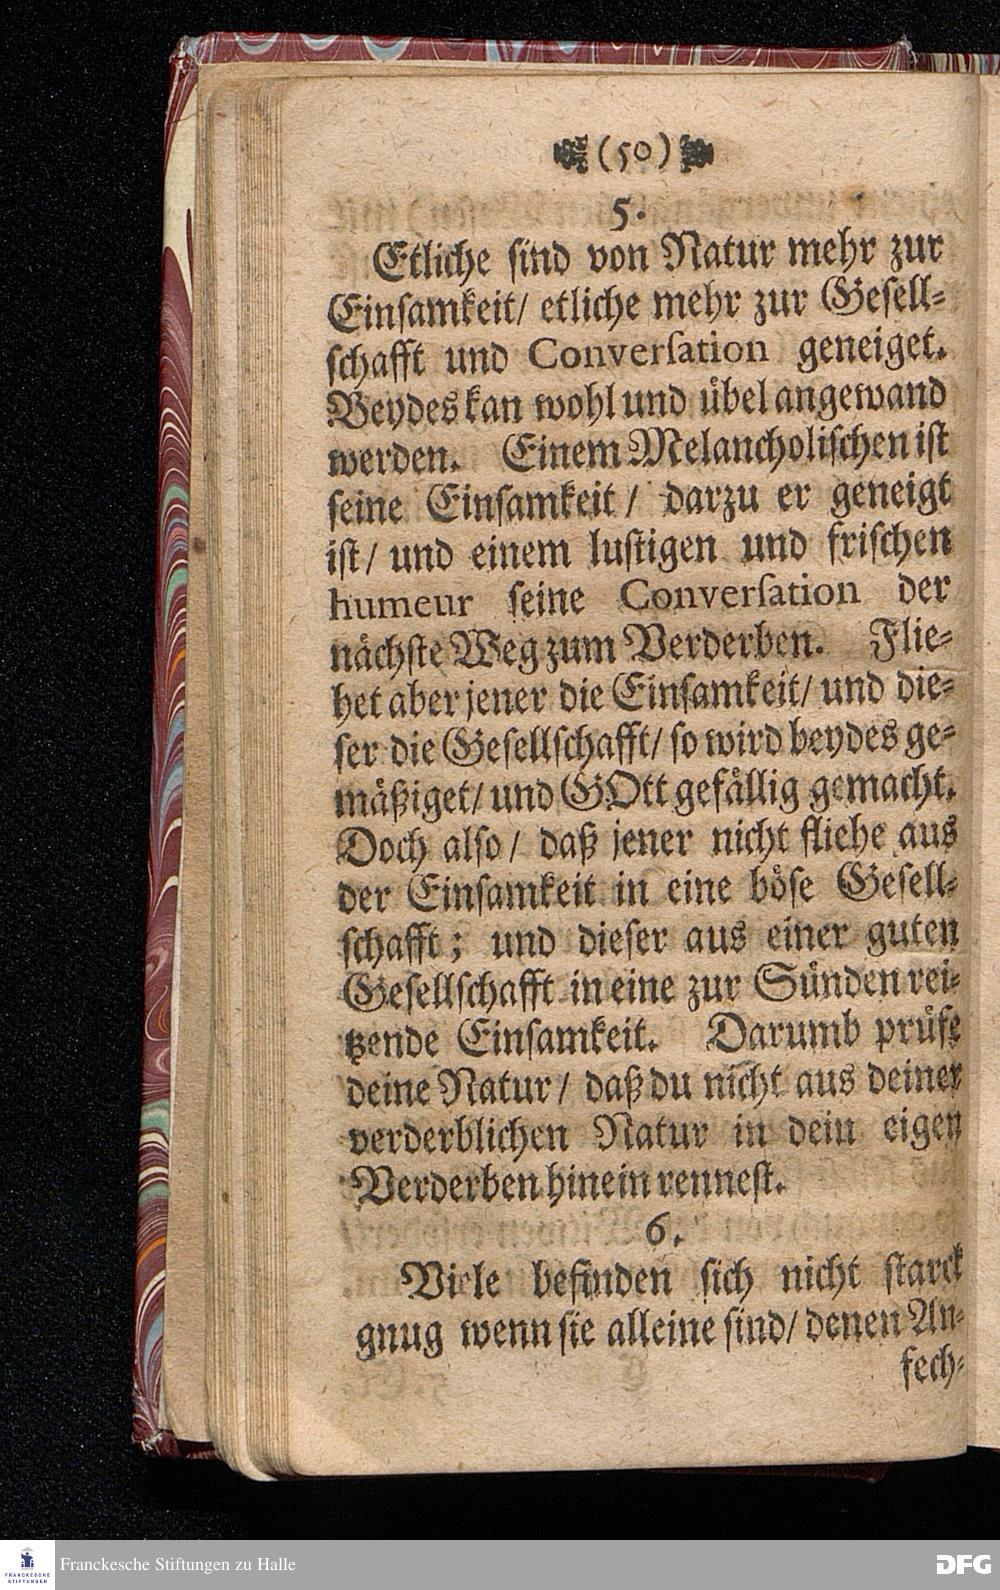 (50)
5.
Etliche sind von Natur mehr zur
Einsamkeit/ etliche mehr zur Gesell-
schafft und Conversation geneiget.
Beydes kan wohl und übel angewand
werden. Einem Melancholischen ist
seine Einsamkeit / darzu er geneigt
ist/ und einem lustigen und frischen
humeur seine Conversation der
nächste Weg zum Verderben. Flie-
het aber jener die Einsamkeit/ und die-
ser die Gesellschafft/ so wird beydes ge-
mäßiget/ und GOtt gefällig gemacht.
Doch also / daß jener nicht fliehe aus
der Einsamkeit in eine böse Gesell-
schafft; und dieser aus einer guten
Gesellschafft in eine zur Sünden rei-
tzende Einsamkeit. Darumb prüfe
deine Natur / daß du nicht aus deiner
verderblichen Natur in dein eigen
Verderben hinein rennest.
6.
Viele befinden sich nicht starck
gnug wenn sie alleine sind/ denen An-
fech-
FRANCKESCHE STIFTUNGEN
Franckesche Stiftungen zu Halle
DFG